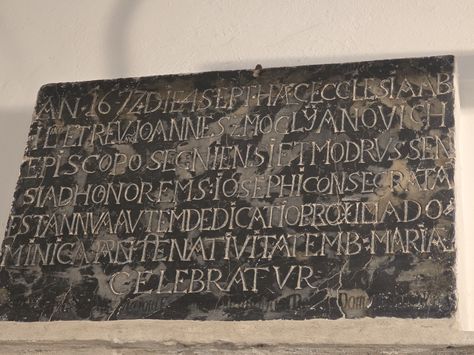 AN · 1677 A DIE 4 SEPT HAEC ECCLESIA AB
ILL ET REV IOANNE S. MOGLYANOVICH
EPISCOPO SEGNIENSI ET MODRVSSEN
SI AD HONOREM S: IOSEPHI CONSECRATA
EST ANNVA AVTEM DEDICATIO PROXIMA DO
MINICA ANTE NATIVITATEM B · MARIAE
CELEBRATVR